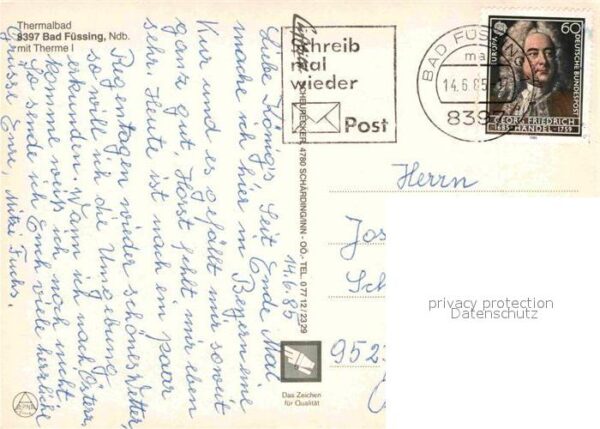 Thermalbad
8397 Bad Füssing, Ndb.
mit Therme I
14.6.85
Liebe König's! Seit Ende Mai
mache ich hier in Bayern eine
Kur und es gefällt mir soweit
ganz gut, Horst fehlt mir eben
sehr. Heute ist nach ein paar
Regentagen wieder schönes Wetter,
so will ich die Umgebung
erkunden. Wann ich nach Österr.
komme weiß ich noch nicht
So sende ich Euch viele herzliche
Grüsse Eure, Mitzi Fuchs.
SCHEURECKER, 4780 SCHÄRDING/INN - OÖ. - TEL. 0 77 12 / 23 29
Das Zeichen
für Qualität
Schreib
mal
wieder
Post
BAD FÜSSING
14.6.85
839
EUROPA
60
DEUTSCHE BUNDESPOST
GEORG FRIEDRICH
1685 HÄNDEL 1759
Herrn
Jos
Sch
952
privacy protection
Datenschutz